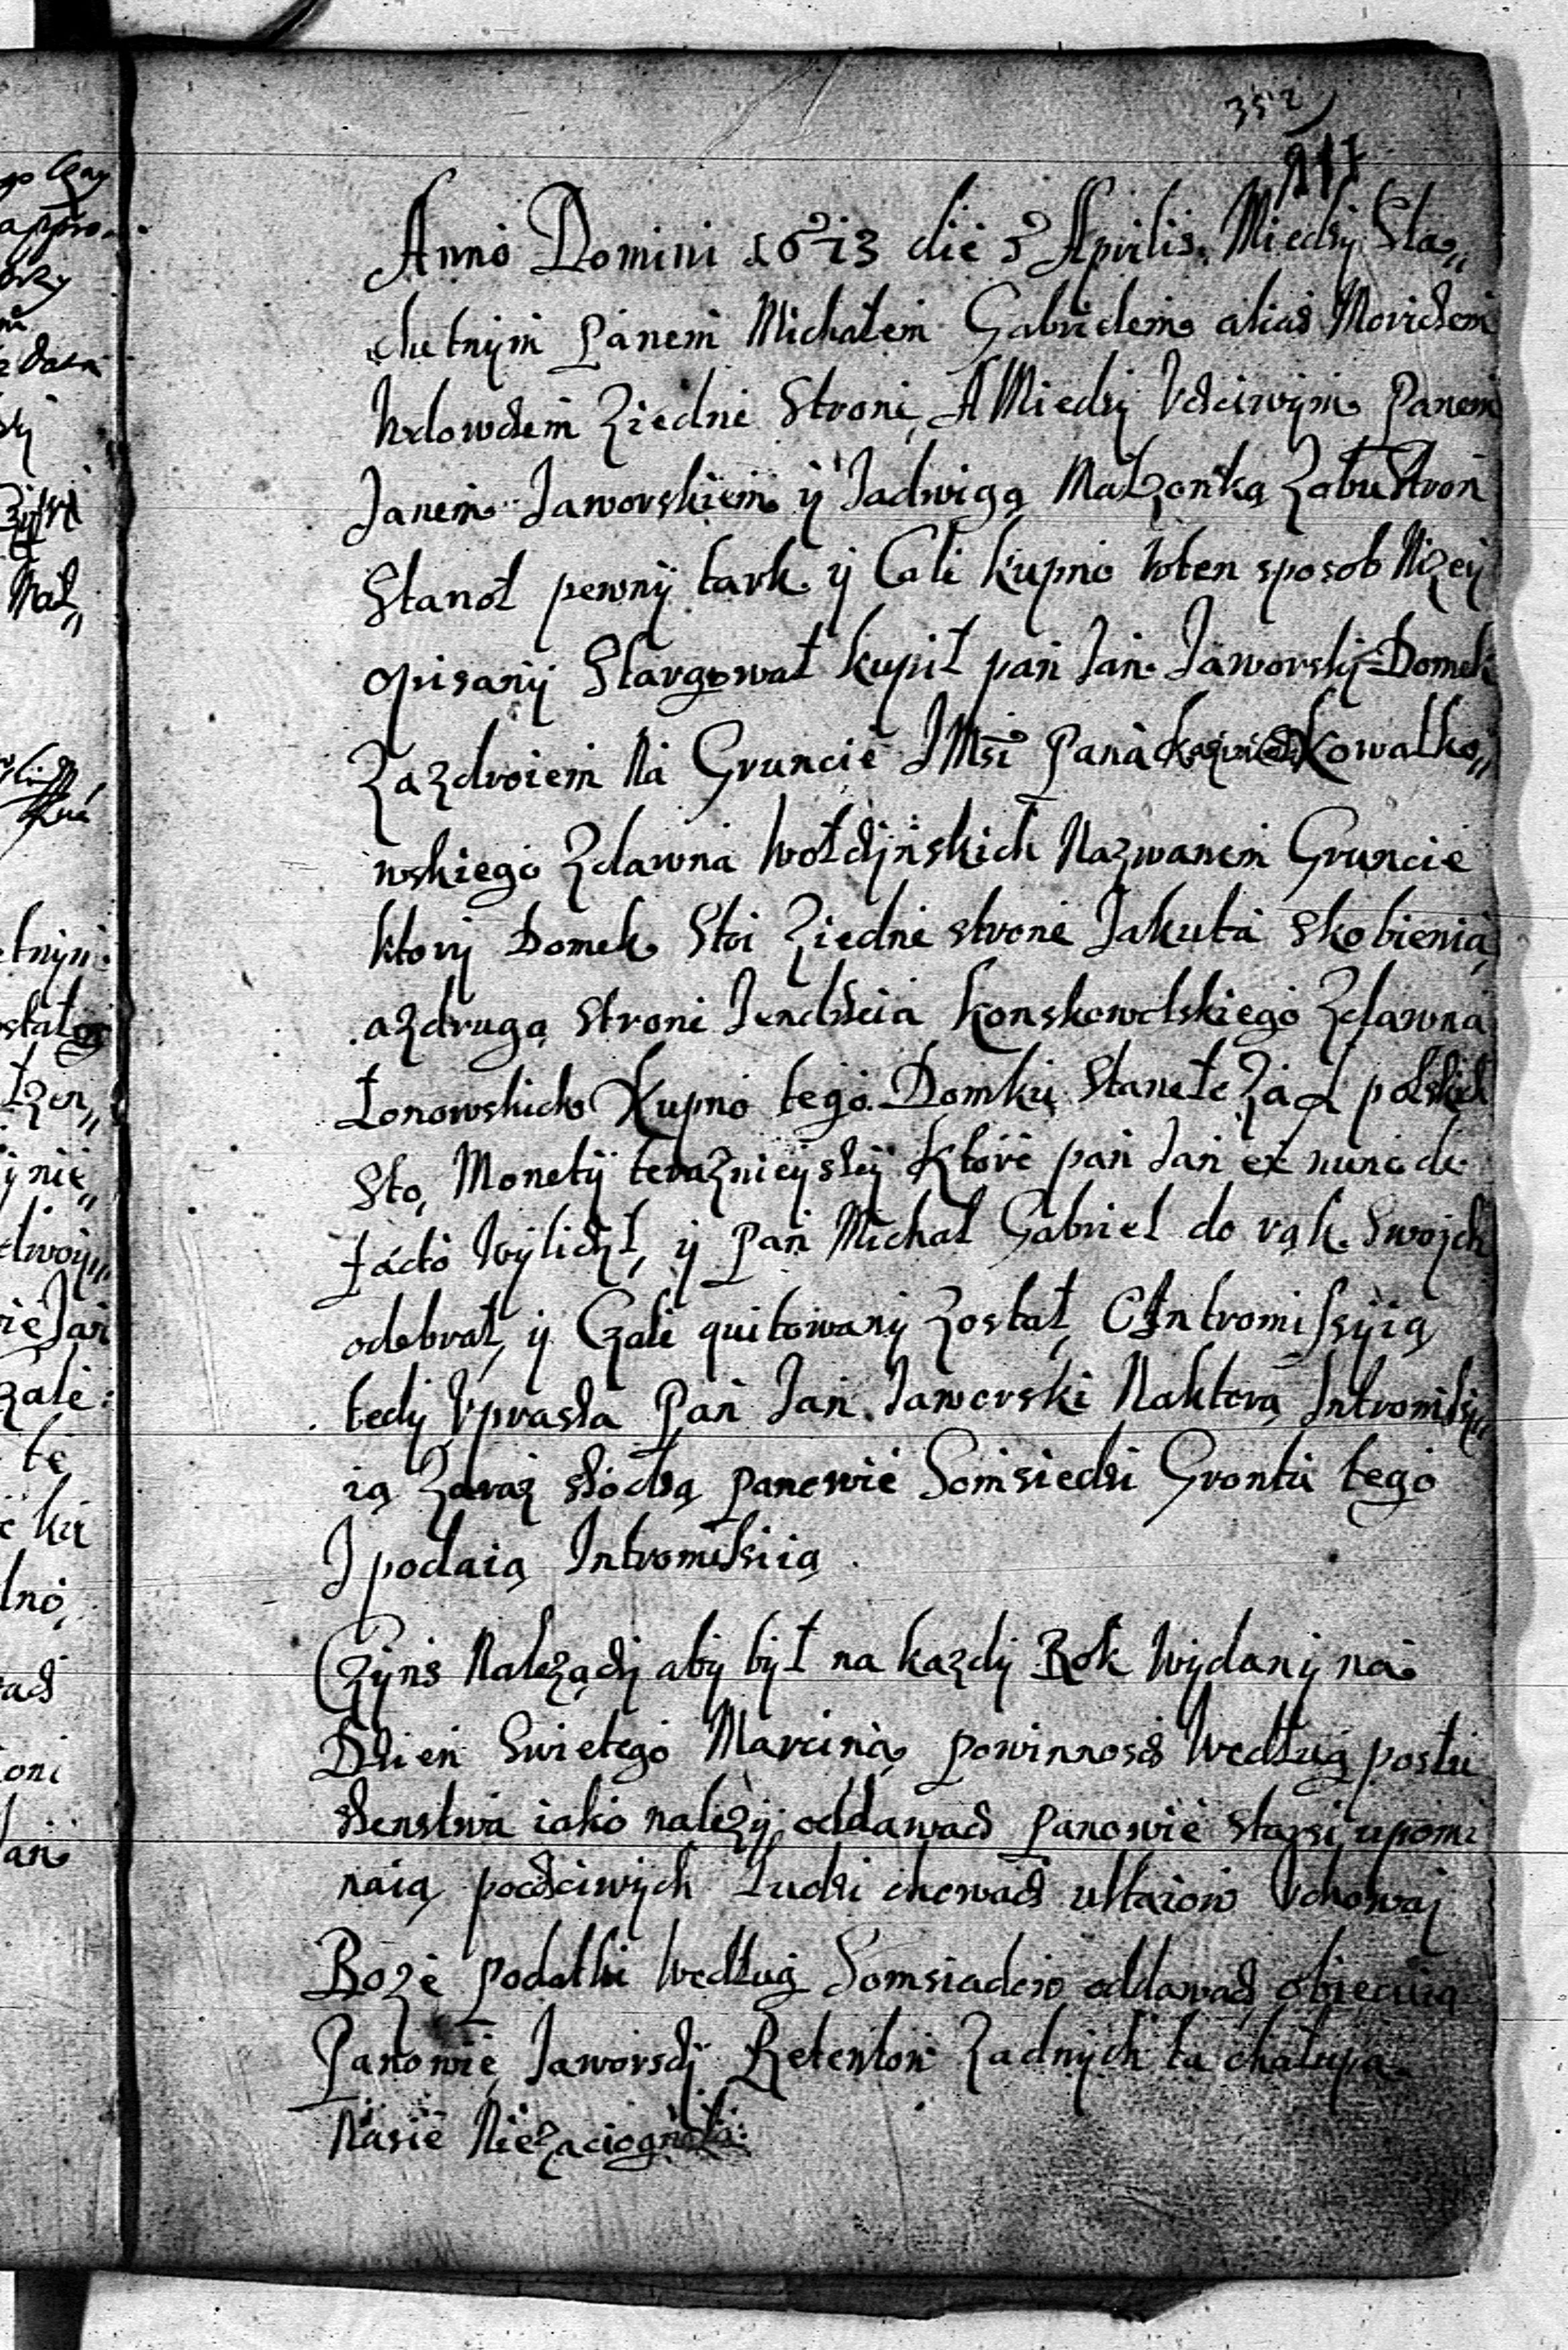 352
Anno Domini 1673 die 5 Aprilis. Miedzÿ Sla„
„chetnÿm Panem Michałem Gabrielem alias
Ziedni Stroni, A Miedzÿ Vczciwÿm Panem
Janem Jaworskiem ÿ Jadwigą Małzonką Zobu Stron
Stanoł pewnÿ tark ÿ Cali Kupno Wten sposob Nizeÿ
opisanÿ Stargował kupił pan Jan Jaworskÿ Domek
Zazdroiem Na Gruncie JMsi Pana Kowalko„
wskiego Zdawna Nazwanem Gruncie
ktorÿ Domek Stoi Ziedni stroni Jakuba Skobienia,
azdrugą Stroni Konskowolskiego Zdawna
Łonowskich Kupno tego Domku Staneło Za polskich
Sto, Monetÿ teraznieÿszÿ Ktore pan Jan ex nunc de
facto Wÿliczÿł, ÿ Pan Michał Gabriel do rąk Swojch
odebrał, ÿ Czali quitowanÿ został, O Intromissÿią
tedÿ Vprasza Pan Jan Jaworski Naktorą Intromissÿ
ią Zaraz panowie Somsiedzi Grontu tego
I podaią Intromissiią.
Czÿns Nalezączÿ abÿ bÿł na kazdÿ Rok Wÿdanÿ na
Dzien Swietego Marcina, powinnoscz Według posłu
szenstwa iako nalezÿ oddawacz Panowie starsi upomi
naią poczciwÿch Ludzi chowacz Vchowaj
Boze podatki Według Somsiadow oddawacz obiecuią
Panowie Jaworsczÿ Retenton Zadnÿch ta chałupa
Nasie Niezaciogneła.